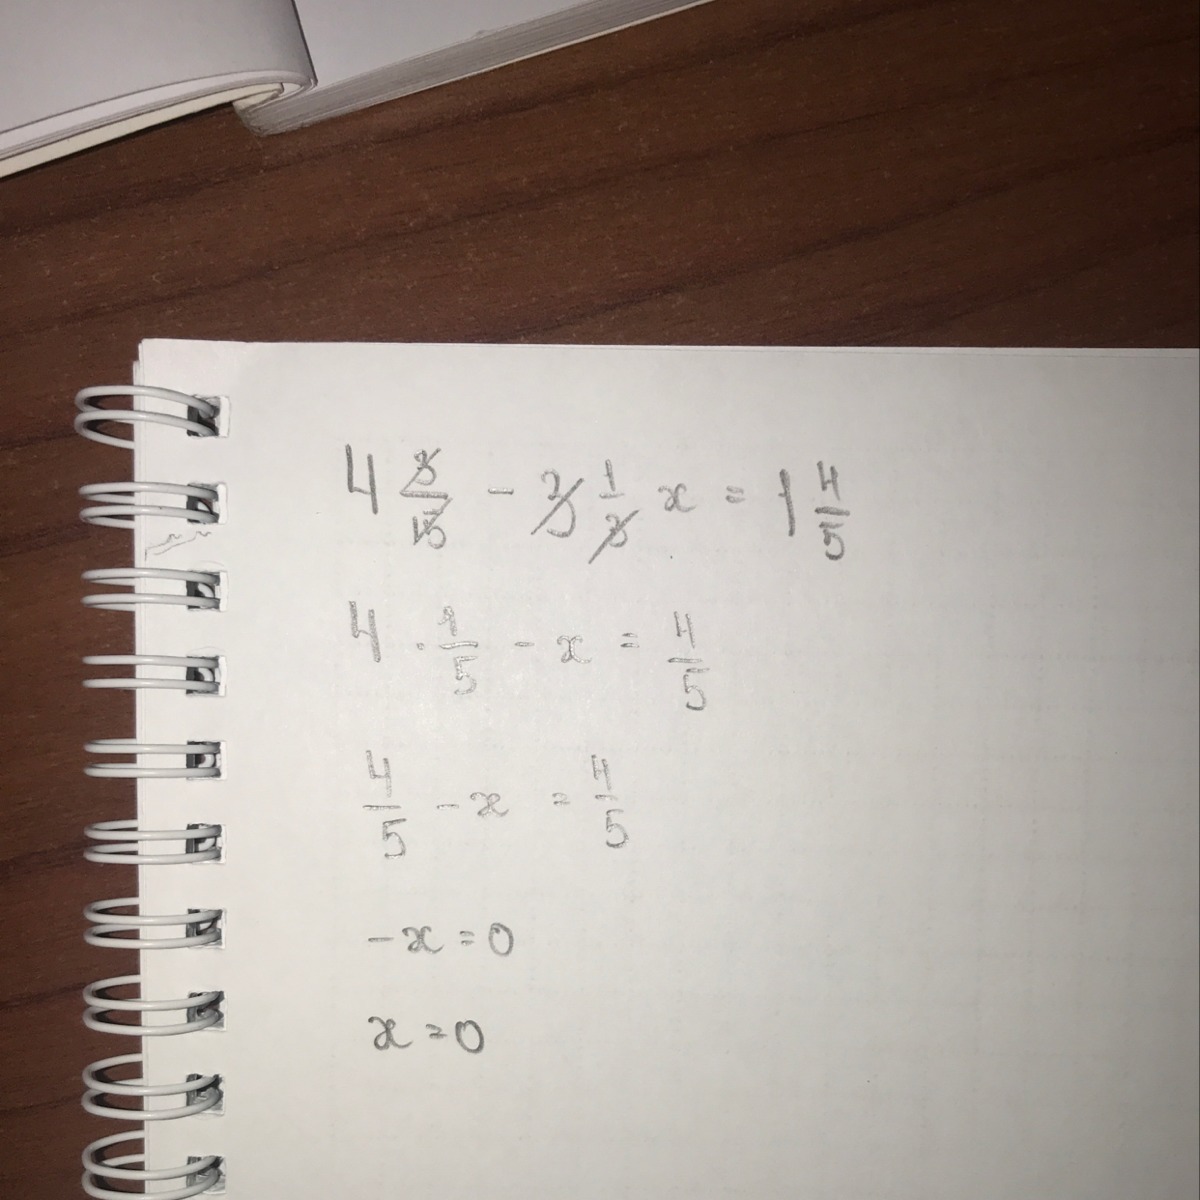 4 3/15 - 3 1/3 x = 1 4/5
4 · 1/5 - x = 4/5
4/5 - x = 4/5
-x = 0
x = 0